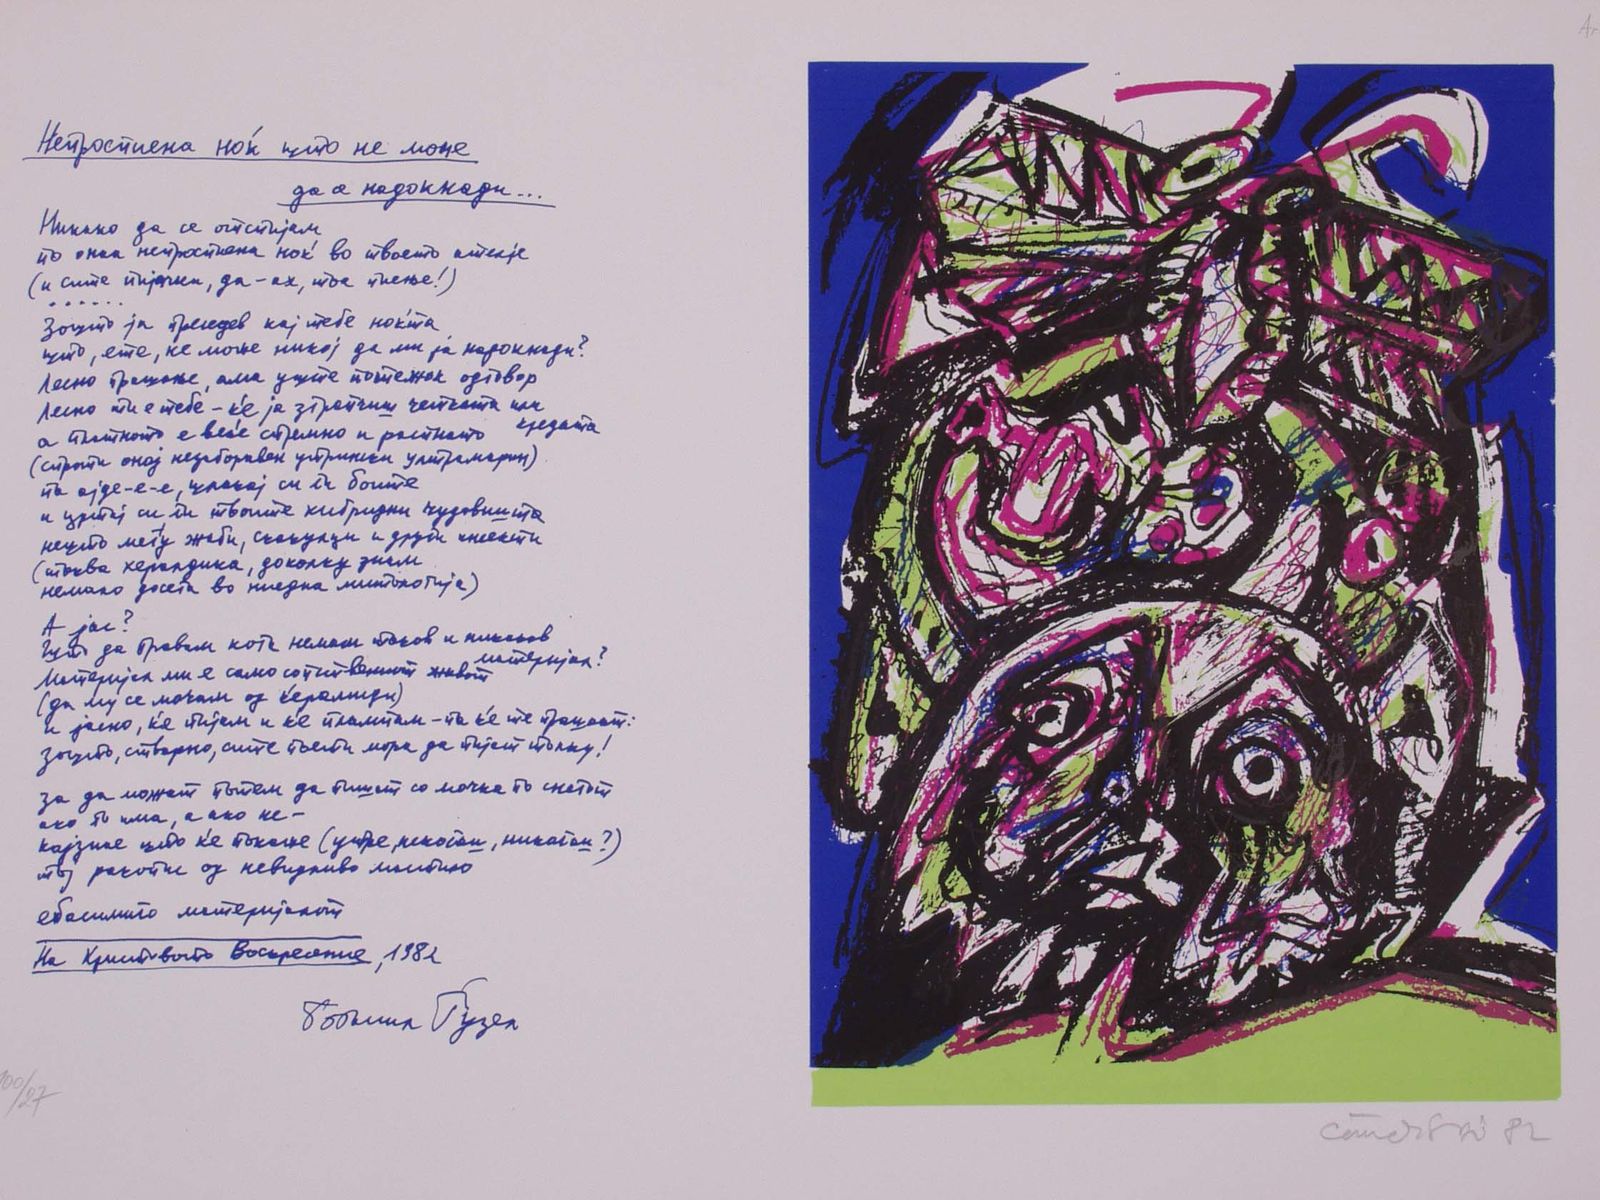 Непроспиена ноќ што не може
да а надокнади...
Никако да се отспијам
по онаа непроспиена ноќ во твоето ателје
(и сите пијачки, да-ах, тоа пиење!)
......
Зошто ја преседев кај тебе ноќта
што, ете, не може никој да ми ја надокнади?
Лесно прашање, ама уште потежок одговор
Лесно ти е тебе – ќе ја зграпчиш четката или
кредата
а платното е веќе спремно и распнато
(спроти оној незаборавен утрински ултрамарин)
па ајде-е-е, цапај си ги боите
и цртај си ги твоите хибридни чудовишта
нешто меѓу жаби, скакулци и други инсекти
(таква хералдика, доколку знам
немало досега во ниедна митологија)
А јас?
Што да правам кога немам таков и никаков
материјал?
Материјал ми е само сопствениот живот
(да му се мочам од ќерамиди)
и јасно, ќе пијам и ќе пламтам – па ќе те прашаат:
Зошто, стварно, сите поети мора да пијат толку!
За да можат потем да пишат со мочка по снегот
ако го има, а ако не –
кајзние што ќе покаже (утре, некогаш, никогаш?)
тој ракопис од невидливо мастило
ебасимито материјалот
На Христовото Воскресение, 1982
Богомил Ѓузел
100/27
82